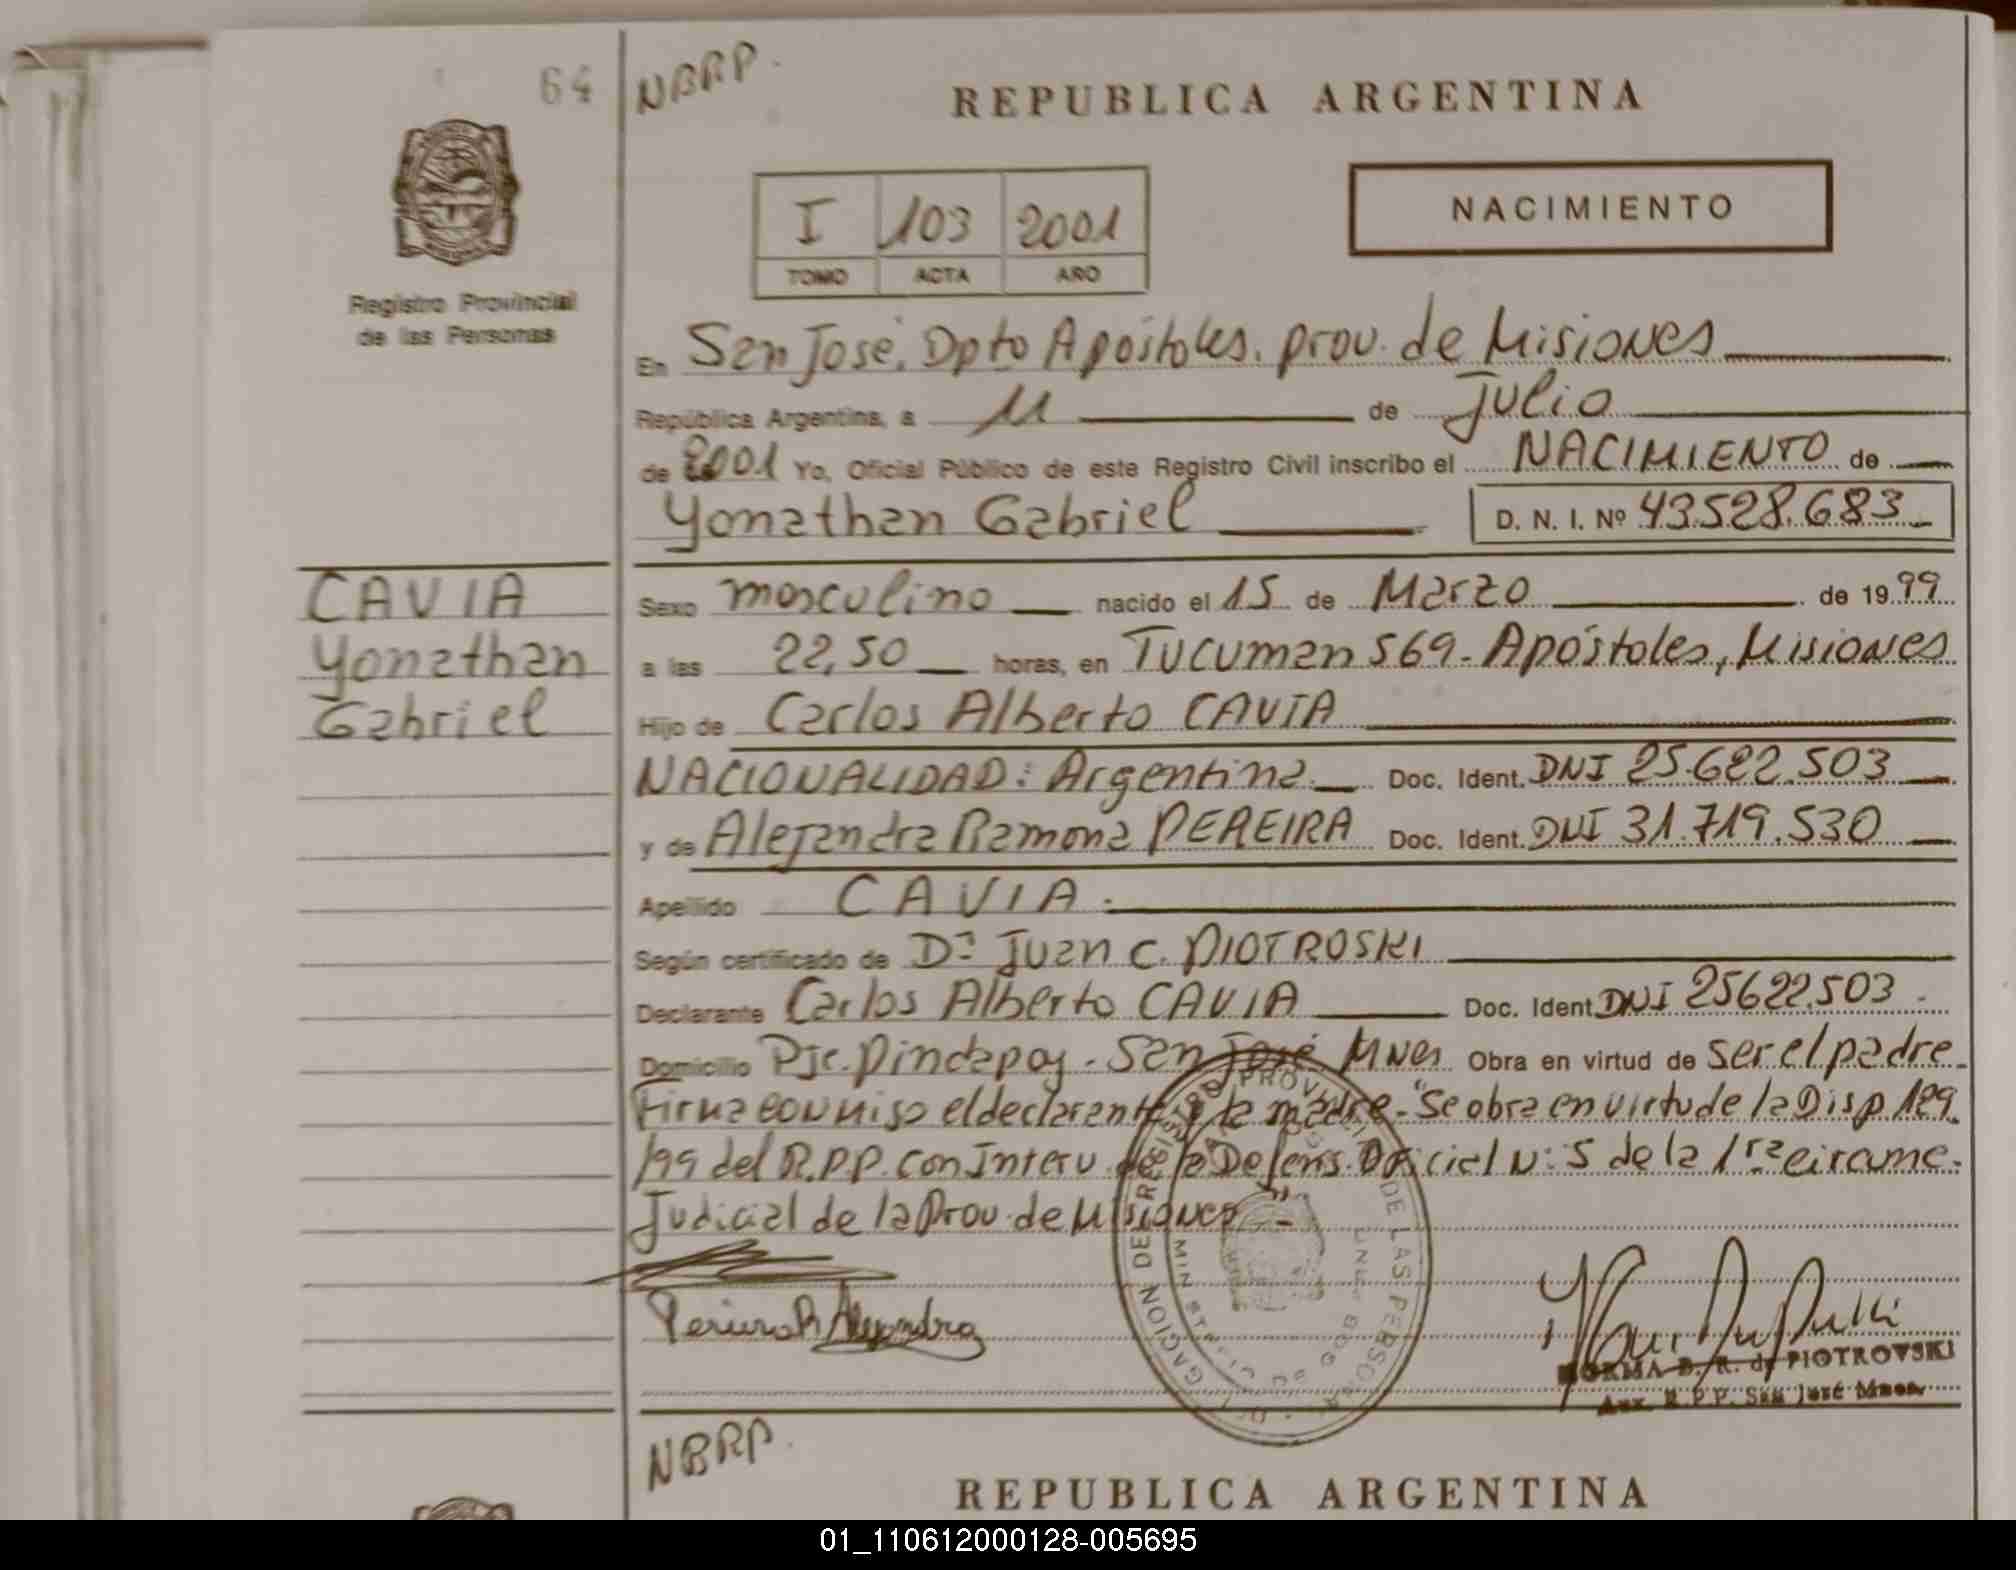 64
NBRP.
REPUBLICA ARGENTINA
I 103 2001
TOMO ACTA AÑO
NACIMIENTO
Registro Provincial
de las Personas
En San José, Dpto Apóstoles, prov. de Misiones
República Argentina, a 11 de Julio
de 2001 Yo, Oficial Público de este Registro Civil inscribo el NACIMIENTO de
Yonathan Gabriel D. N. I. Nº 43.528.683
CAVIA
Yonathan
Gabriel
Sexo masculino nacido el 15 de Marzo de 1999
a las 22,50 horas, en Tucuman 569 - Apóstoles, Misiones
Hijo de Carlos Alberto CAVIA
NACIONALIDAD: Argentina Doc. Ident. DNI 25.622.503
y de Alejandra Ramona PEREIRA Doc. Ident. DNI 31.719.530
Apellido CAVIA.
Según certificado de Dr Juan C. PIOTROSKI
Declarante Carlos Alberto CAVIA Doc. Ident. DNI 25622.503
Domicilio Pje. Pindapoy - San José Mnes Obra en virtud de ser el padre
Firma conmigo el declarante y la madre - "Se obra en virtud de la Disp 129
/99 del R.P.P. con Interv. de la Defens. Oficial Nº 5 de la 1ra circunc.
Judicial de la Prov. de Misiones -
Pereira R Alejandra
DELEGACION DEL REGISTRO PROVINCIAL DE LAS PERSONAS
NORMA B. R. de PIOTROVSKI
Aux. R.P.P. San José Mnes.
NBRP.
REPUBLICA ARGENTINA
01_110612000128-005695